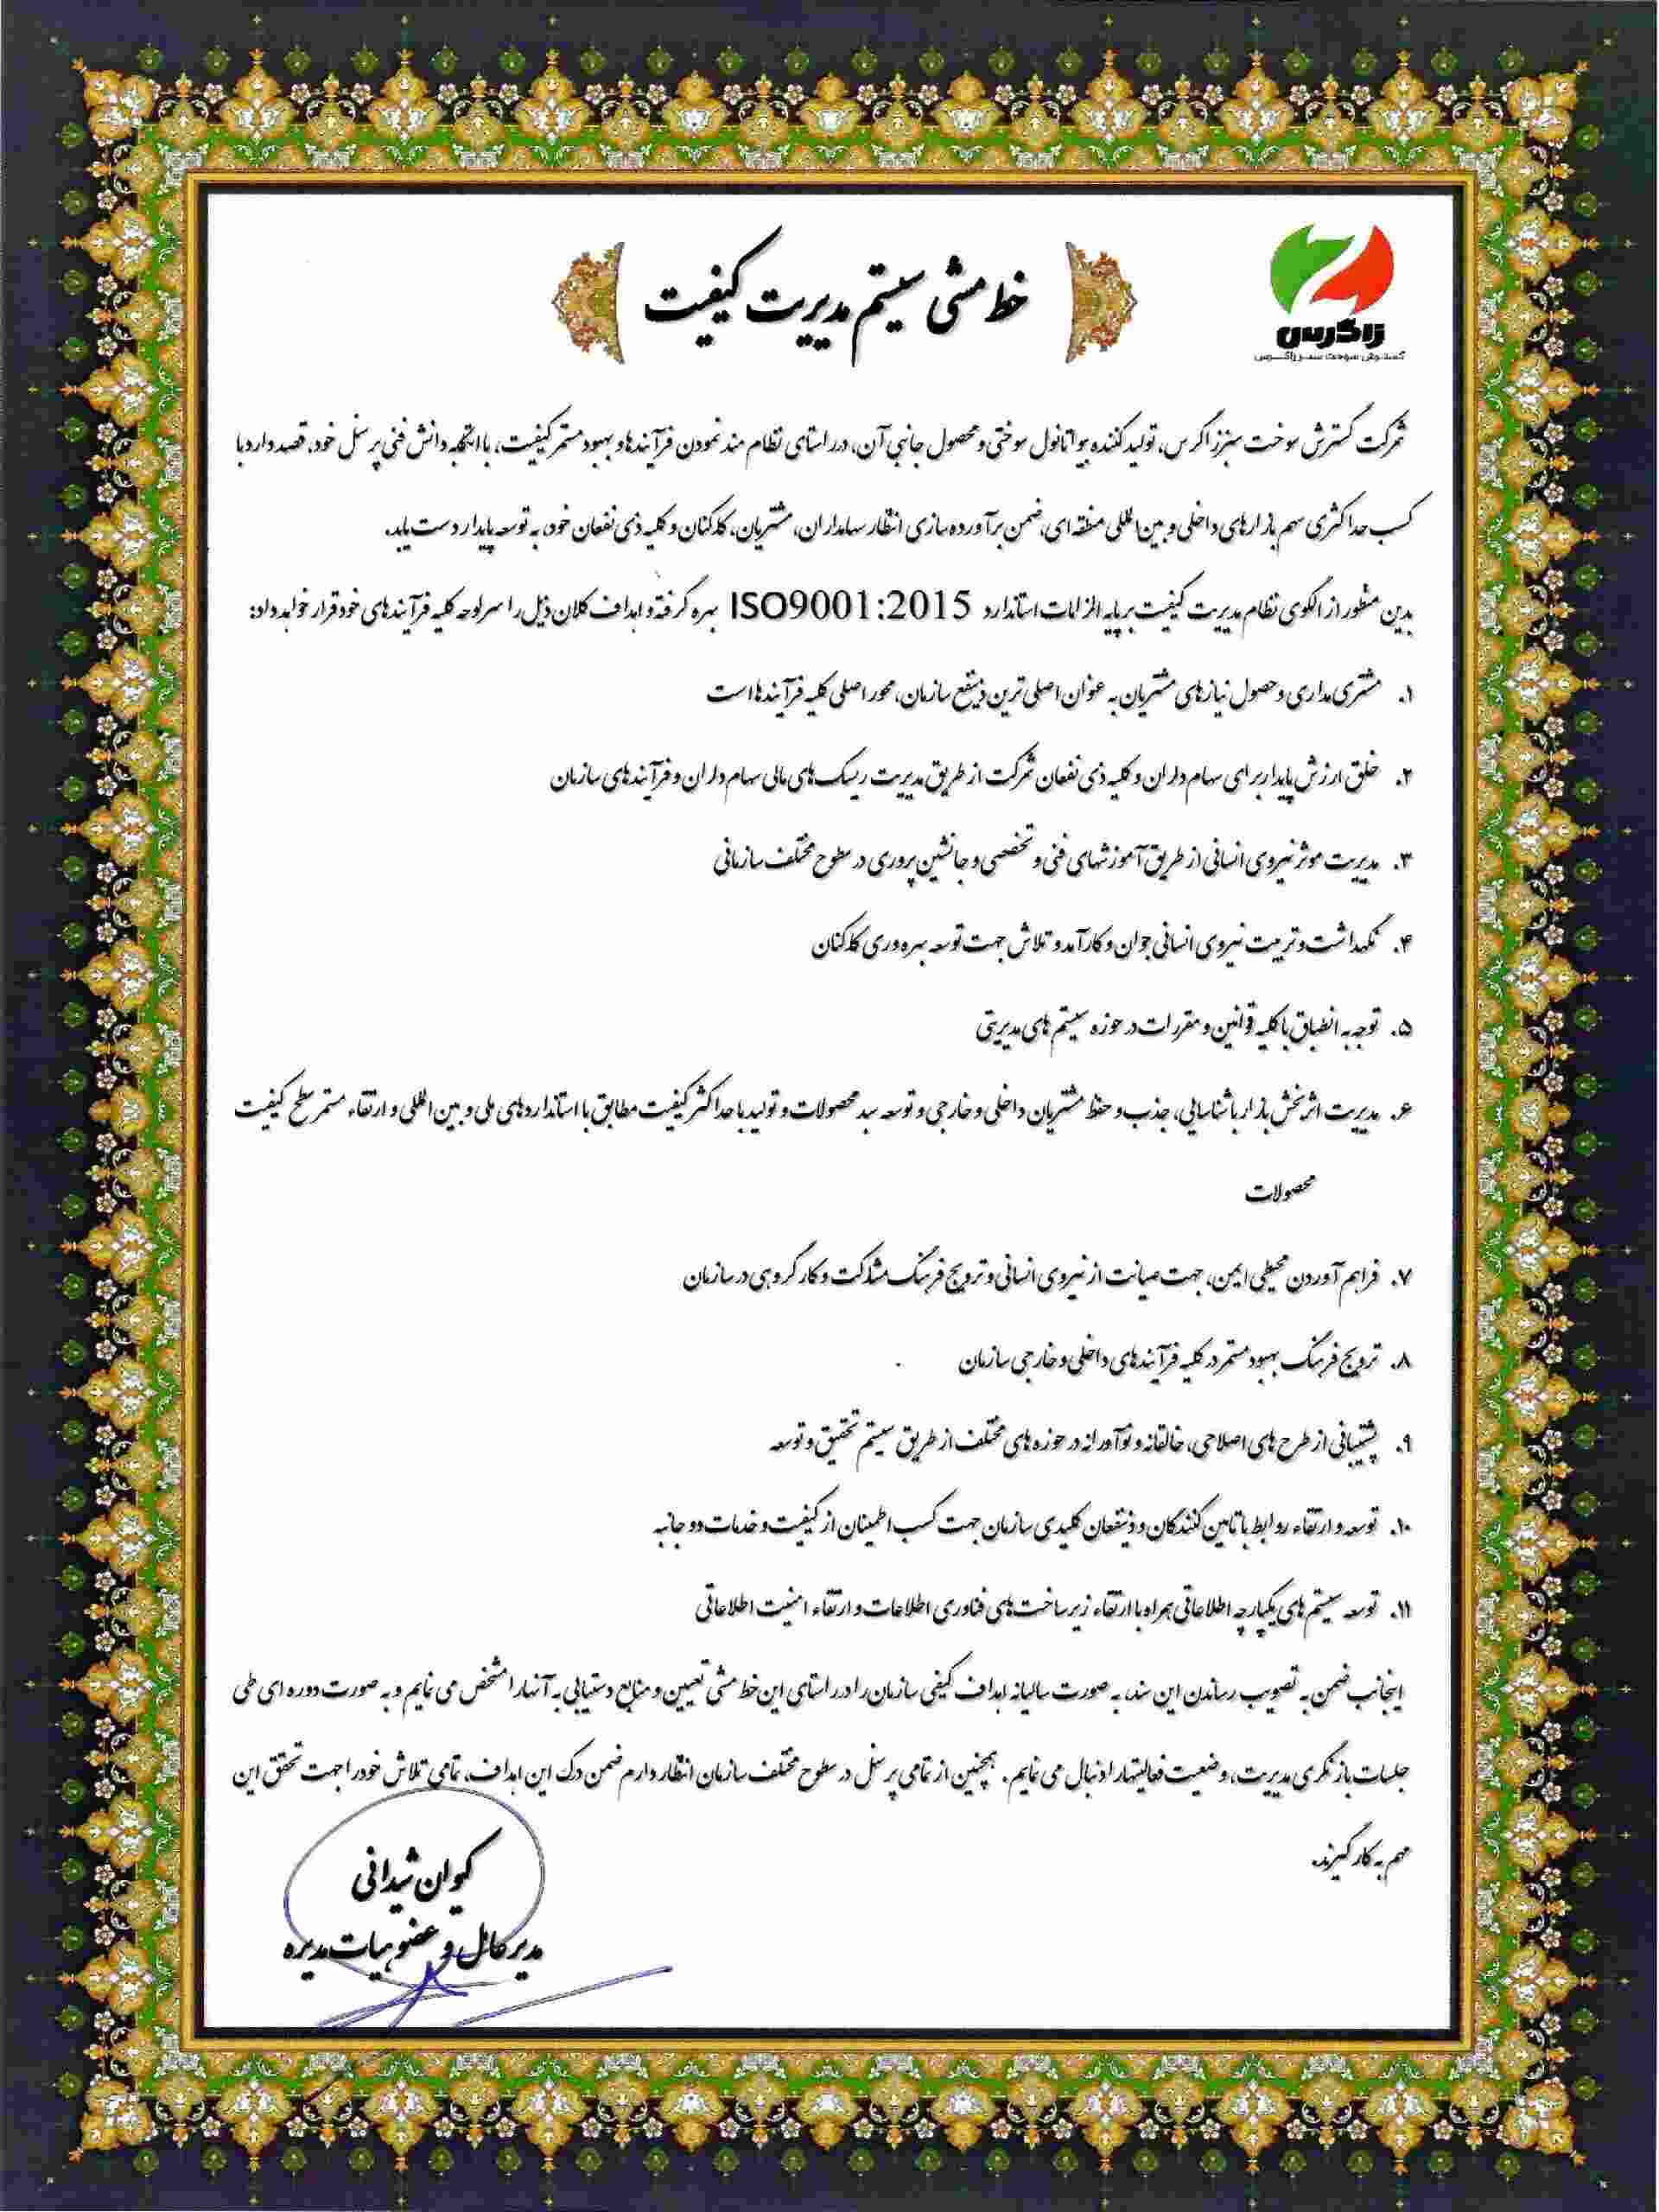 زاگرس
گسترش سوخت سبز زاگرس
خط مشی سیستم مدیریت کیفیت
شرکت گسترش سوخت سبز زاگرس، تولید کننده بیواتانول سوختی و محصول جانبی آن، در راستای نظام مند نمودن فرآیندها و بهبود مستمر کیفیت، با اتکا به دانش فنی پرسنل خود، قصد دارد با
کسب حداکثری سهم بازارهای داخلی و بین المللی منطقه ای، ضمن برآورده سازی انتظار سهامداران، مشتریان، کارکنان و کلیه ذی نفعان خود، به توسعه پایدار دست یابد.
بدین منظور از الگوی نظام مدیریت کیفیت بر پایه الزامات استاندارد ISO9001:2015 بهره گرفته و اهداف کلان ذیل را سرلوحه کلیه فرآیندهای خود قرار خواهد داد:
۱. مشتری مداری و حصول نیازهای مشتریان به عنوان اصلی ترین ذینفع سازمان، محور اصلی کلیه فرآیندها است
۲. خلق ارزش پایدار برای سهام داران و کلیه ذی نفعان شرکت از طریق مدیریت ریسک های مالی سهام داران و فرآیندهای سازمان
۳. مدیریت موثر نیروی انسانی از طریق آموزشهای فنی و تخصصی و جانشین پروری در سطوح مختلف سازمانی
۴. نگهداشت و تربیت نیروی انسانی جوان و کارآمد و تلاش جهت توسعه بهره وری کارکنان
۵. توجه به انطباق با کلیه قوانین و مقررات در حوزه سیستم های مدیریتی
۶. مدیریت اثربخش بازار با شناسایی، جذب و حفظ مشتریان داخلی و خارجی و توسعه سبد محصولات و تولید با حداکثر کیفیت مطابق با استانداردهای ملی و بین المللی و ارتقاء مستمر سطح کیفیت
محصولات
۷. فراهم آوردن محیطی ایمن، جهت صیانت از نیروی انسانی و ترویج فرهنگ مشارکت و کار گروهی در سازمان
۸. ترویج فرهنگ بهبود مستمر در کلیه فرآیندهای داخلی و خارجی سازمان
۹. پشتیبانی از طرح های اصلاحی، خالقانه و نوآورانه در حوزه های مختلف از طریق سیستم تحقیق و توسعه
۱۰. توسعه و ارتقاء روابط با تامین کنندگان و ذینفعان کلیدی سازمان جهت کسب اطمینان از کیفیت و خدمات دو جانبه
۱۱. توسعه سیستم های یکپارچه اطلاعاتی همراه با ارتقاء زیرساخت های فناوری اطلاعات و ارتقاء امنیت اطلاعاتی
اینجانب ضمن به تصویب رساندن این سند، به صورت سالیانه اهداف کیفی سازمان را در راستای این خط مشی تعیین و منابع دستیابی به آنها را مشخص می نمایم و به صورت دوره ای طی
جلسات بازنگری مدیریت، وضعیت فعالیتها را دنبال می نمایم. همچنین از تمامی پرسنل در سطوح مختلف سازمان انتظار دارم ضمن درک این اهداف، تمامی تلاش خود را جهت تحقق این
مهم به کار گیرند.
کیوان شیدائی
مدیرعامل و عضو هیات مدیره